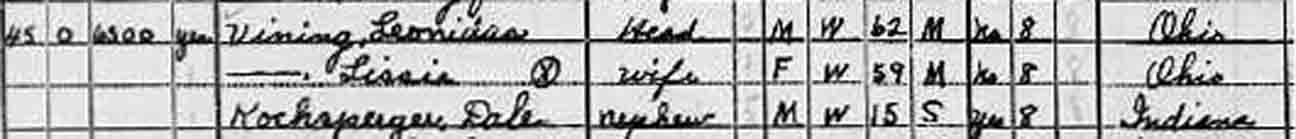 45 0 6500 yes Vining, Leonidas Head M W 62 M No 8 Ohio
——, Lissie ⓧ wife F W 59 M No 8 Ohio
Kochsperger, Dale nephew M W 15 S yes 8 Indiana